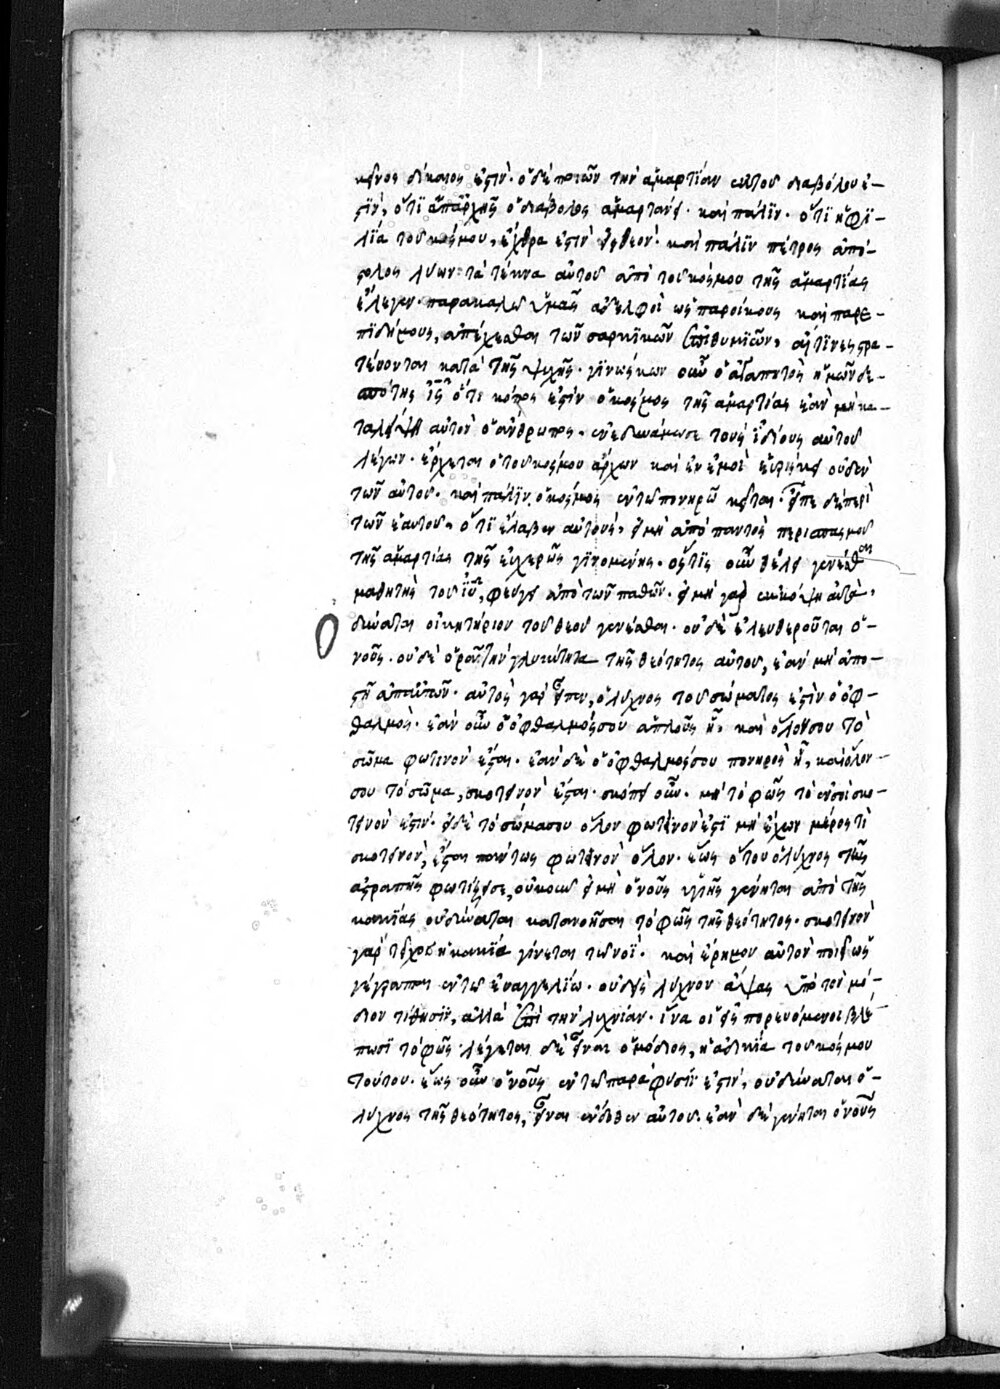 κεῖνος δίκαιος ἐστὶν· ὁ δὲ ποιῶν τὴν ἁμαρτίαν ἐκ τοῦ διαβόλου ἐ-
στὶν, ὅτι ἀπαρχῆς ὁ διάβολος ἁμαρτάνει· καὶ πάλιν· ὅτι ἡ φι-
λία τοῦ κόσμου, ἔχθρα ἐστὶν εἰς θεόν· καὶ πάλιν πέτρος ἀπό-
στολος λύων τὰ τέκνα αὐτοῦ ἀπὸ τοῦ κόσμου τῆς ἁμαρτίας
ἔλεγεν· παρακαλῶ ὑμᾶς ἀδελφοὶ ὡς παροίκους καὶ παρε-
πιδήμους, ἀπέχεσθαι τῶν σαρκικῶν ἐπιθυμιῶν, αἵτινες στρα-
τεύονται κατὰ τῆς ψυχῆς· γινώσκων οὖν ὁ ἀγαπητὸς ἡμῶν δε-
σπότης ἰς ὅτι κόπος ἐστὶν ὁ κόσμος τῆς ἁμαρτίας ἐὰν μὴ κα-
ταλείψῃ αὐτὸν ὁ ἄνθρωπος, ἐνεδυνάμωσε τοὺς ἰδίους αὐτοῦ
λέγων· ἔρχεται ὁ τοῦ κόσμου ἄρχων καὶ ἐν ἐμοὶ εὑρίσκει οὐδὲν
τῶν αὐτοῦ· καὶ πάλιν, ὁ κόσμος ἐν τῷ πονηρῷ κεῖται· εἶπε δὲ περὶ
τῶν ἑαυτοῦ, ὅτι ἔλαβεν αὐτοὺς, εἰ μὴ ἀπὸ παντὸς περισπασμοῦ
τῆς ἁμαρτίας τῆς εὐχερῶς γινομένης· ὅστις οὖν θέλει γενέσθαι
μαθητὴς τοῦ ἰυ, φεύγει ἀπὸ τῶν παθῶν· εἰ μὴ γὰρ ἐκκόψῃ αὐτὰ,
δύναται οἰκητήριον τοῦ θεοῦ γενέσθαι· οὐδὲ ἐλευθεροῦται ὁ-
νοῦς· οὐδὲ ὁρᾷ τὴν γλυκύτητα τῆς θεότητος αὐτοῦ, ἐὰν μὴ ἀπο-
στῇ ἀπ' αὐτῶν· αὐτὸς γὰρ εἶπεν, ὁ λύχνος τοῦ σώματος ἐστὶν ὁ ὀφ-
θαλμὸς· ἐὰν οὖν ὁ ὀφθαλμός σου ἁπλοῦς ᾖ, καὶ ὅλον σου τὸ
σῶμα φωτεινὸν ἔσται· ἐὰν δὲ ὁ ὀφθαλμός σου πονηρὸς ᾖ, καὶ ὅλον
σου τὸ σῶμα, σκοτεινὸν ἔσται· σκόπει οὖν· μὴ τὸ φῶς τὸ ἐν σοὶ σκο-
τεινόν ἐστιν· εἰ δὲ τὸ σῶμα σου ὅλον φωτεινὸν ἐστὶ μὴ ἔχων μέρος τὶ
σκοτεινὸν, ἔσται πάντως φωτεινὸν ὅλον· ἕως ὅτου ὁ λύχνος τῆς
ἀστραπῆς φωτίζει σε, οὐκοῦν εἰ μὴ ὁ νοῦς ὑγιὴς γένηται ἀπὸ τῆς
κακίας οὐ δύναται κατανοῆσαι τὸ φῶς τῆς θεότητος· σκοτεινὸν
γὰρ τεῖχος ἡ κακία γίνεται τῷ νοῒ· καὶ ἔρημον αὐτὸν ποιεῖ ὡς
γέγραπται ἐν τῷ εὐαγγελίῳ· οὐδεὶς λύχνον ἅψας ὑπὸ τὸν μό-
διον τίθησιν, ἀλλὰ ἐπὶ τὴν λυχνίαν· ἵνα οἱ εἰσπορευόμενοι βλέ-
πωσι τὸ φῶς· λέγεται δὲ εἶναι ὁ μόδιος, ἡ ἀδικία τοῦ κόσμου
τούτου· ἕως οὖν ὁ νοῦς ἐν τῷ παρὰ φύσιν ἐστιν, οὐ δύναται ὁ-
λύχνος τῆς θεότητος, εἶναι ἔνδοθεν αὐτοῦ· ἐὰν δὲ γένηται ὁ νοῦς